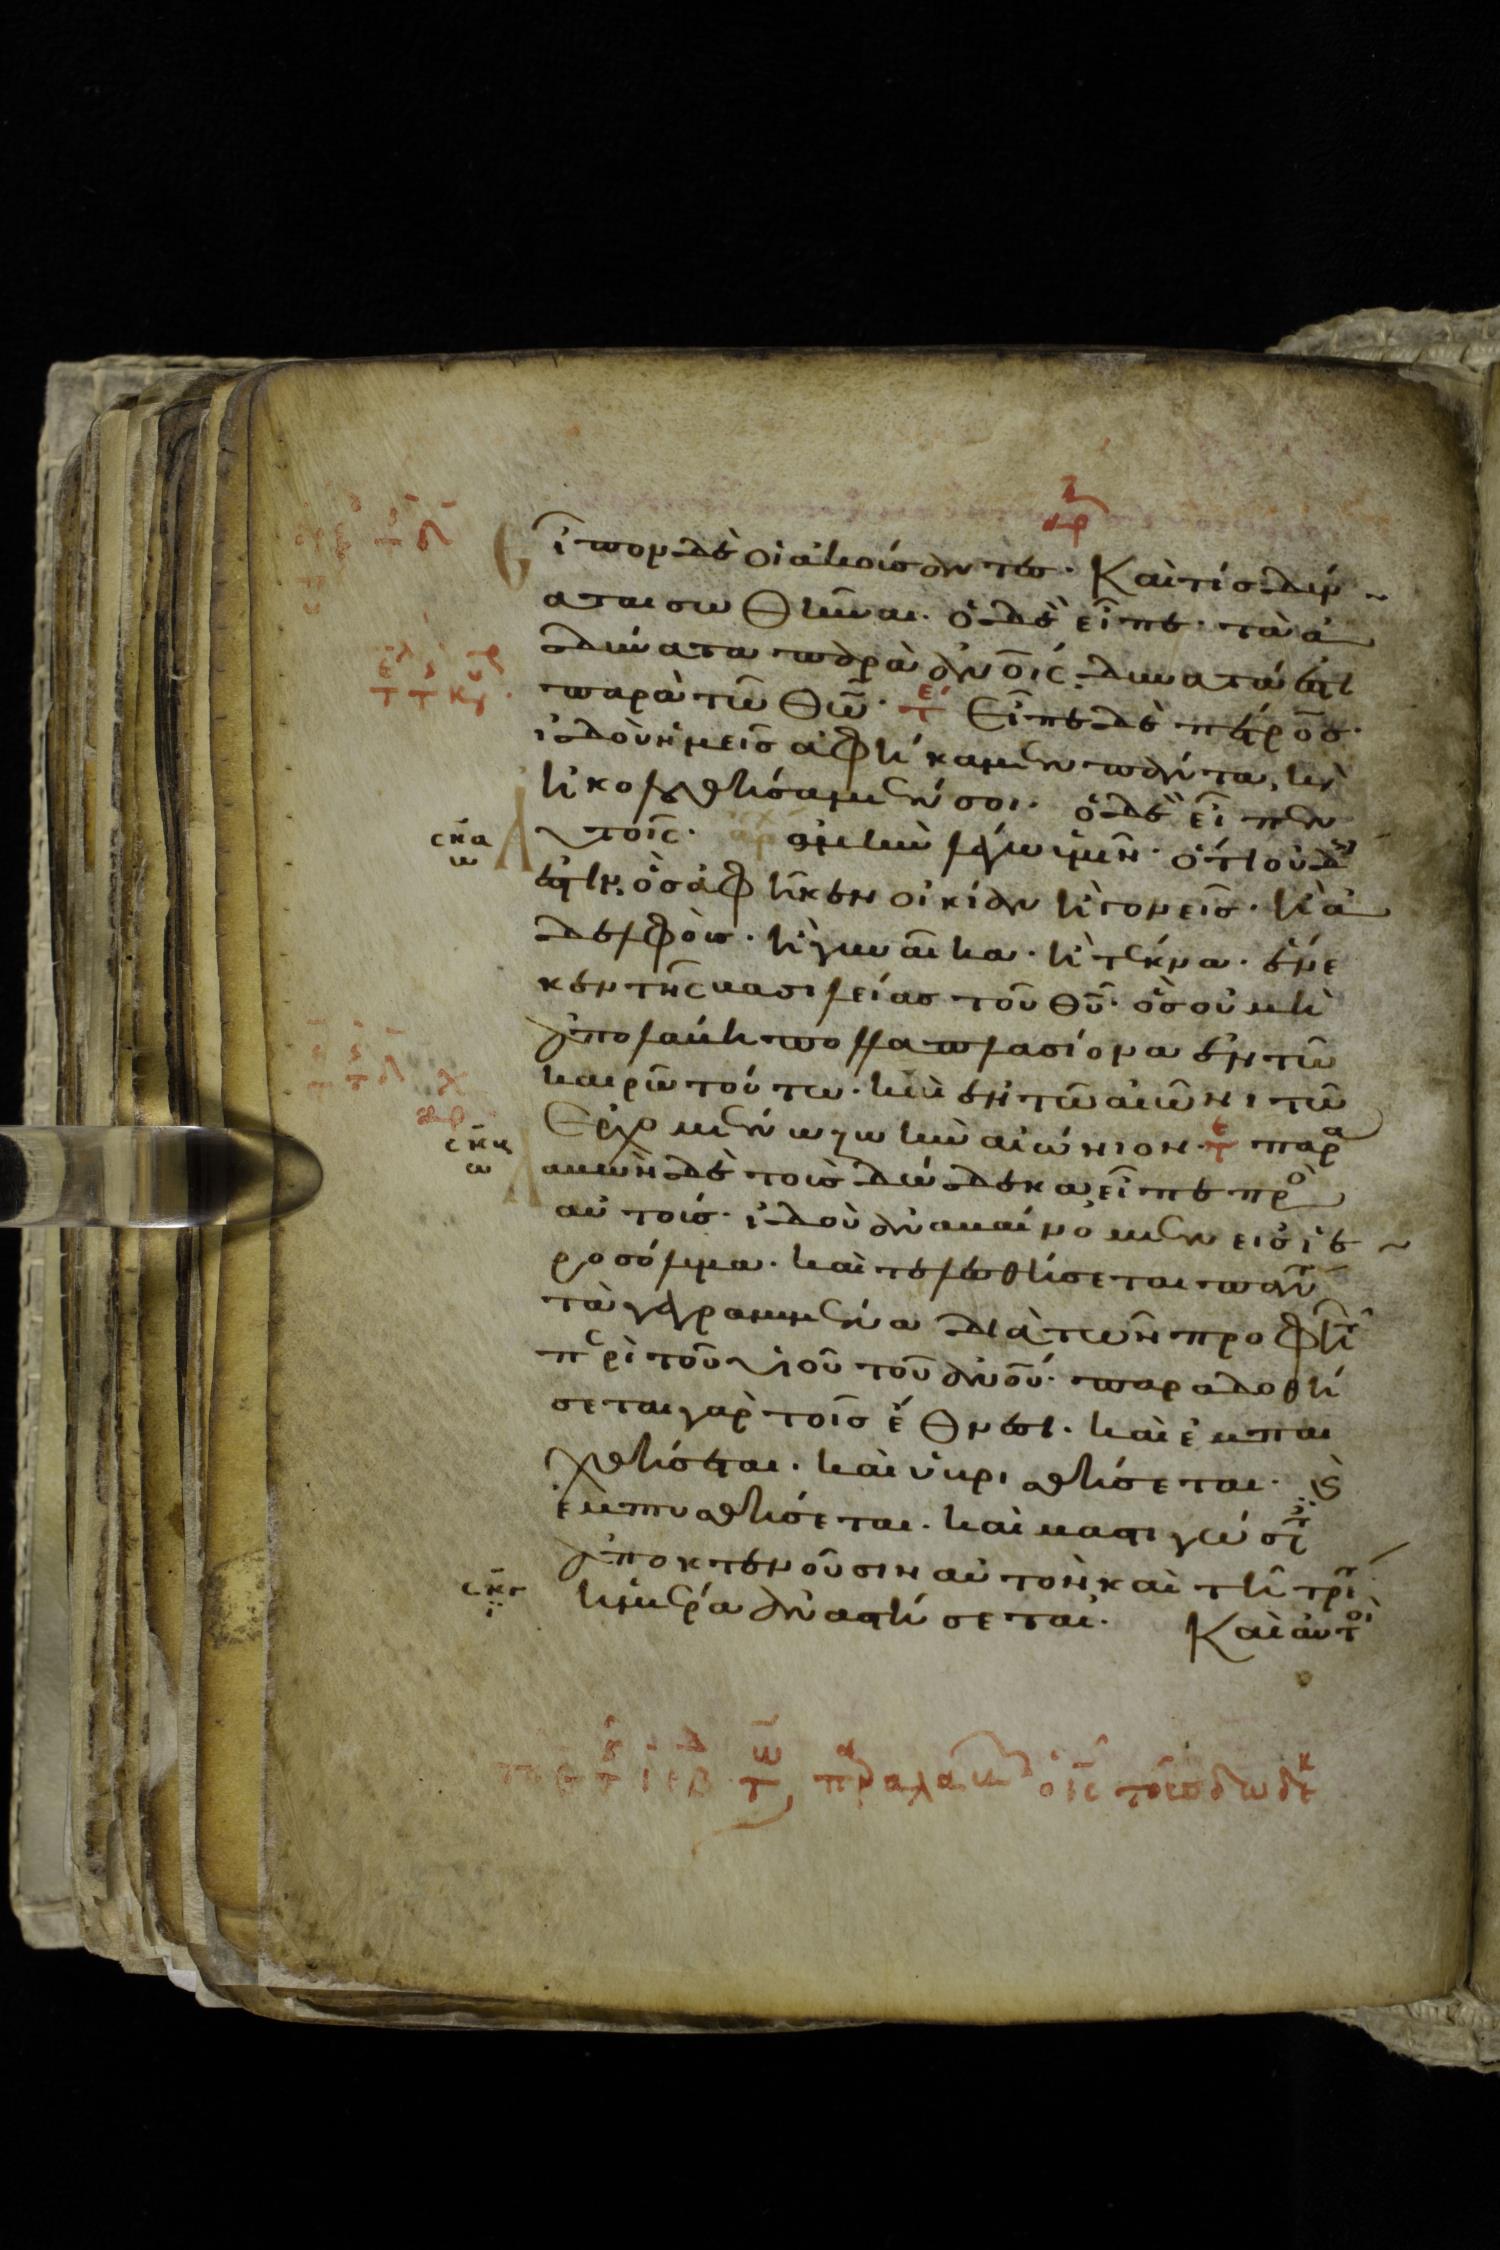 Εἶπον δὲ οἱ ἀκούσαντες· Καὶ τίς δύν
αται σωθῆναι· ὁ δὲ εἶπε· τὰ ἀ
δύνατα παρὰ ἀνοις, δυνατά ἐστι
παρὰ τῶ Θῶ· Εἶπε δὲ πέτρος·
ἰδοὺ ἡμεῖς ἀφήκαμεν πάντα, κὶ
ἠκολουθήσαμέν σοι· ὁ δὲ εἶπεν
αυτοῖς· ἀμὴν λέγω ὑμῖν· ὅτι οὐδείς
ἐστιν, ὃς ἀφῆκεν οἰκίαν ἢ γονεῖς· ἢ ἀ
δελφοὺς· ἢ γυναῖκα· ἢ τέκνα· ἕνε
κεν τῆς βασιλείας τοῦ Θῦ· ὃς οὐ μὴ
ἀπολαύη πολλαπλασίονα ἐν τῶ
καιρῶ τούτω· καὶ ἐν τῶ αἰῶνι τῶ
Ερχομένω ζωὴν αἰώνιον· παρα
λαβὼν δὲ τοὺς δώδεκα, εἶπε προ
αὐτούς· ἰδοὺ ἀναβαίνομεν εἰς ἱε
ροσόλυμα· καὶ τελεσθήσεται πάντ
τὰ γεγραμμένα διὰ τῶν προφητ
περὶ τοῦ υἱοῦ τοῦ ἀνου· παραδοθή
σεται γὰρ τοῖς ἔθνεσι· καὶ ἐμπαι
χθήσεται· καὶ ὑβρισθήσεται· κ
ἐμπτυσθήσεται· καὶ μαστιγώσαντ
ἀποκτενοῦσιν αὐτὸν καὶ τῆ τρί
ἡμέρα ἀναστήσεται· Καὶ αὐτοὶ
τω παραλαμ ὁ ις τοὺς δώδεκ